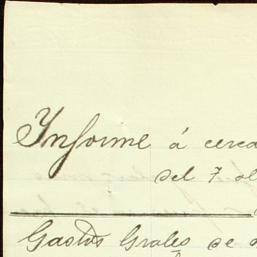 Informe á cerca
del 7 al
Gastos Grales se